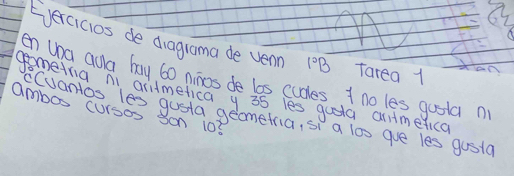 Ejercicios de diagrama de venn 1ºB Tarea 1
en una aula hay 60 niños de los cuales 1 no les gusta ni
geometria ni aritmetica y 35 les gusta aritmetica
¿cuantos les gusta geometria, si a los que les gusta
ambos cursos son 10?